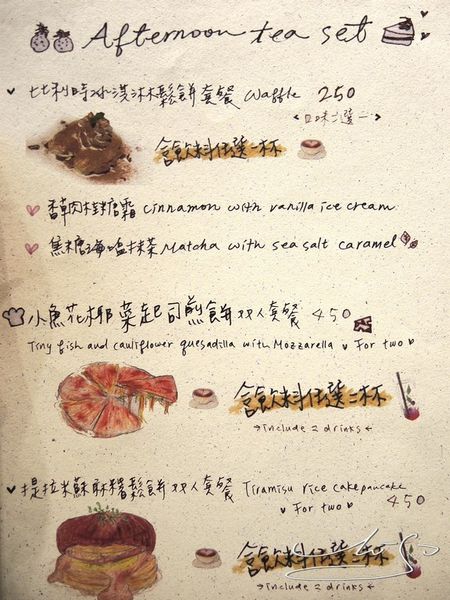 Afternoon tea set
比利時冰淇淋鬆餅套餐 Waffle 250
<口味二選一>
含飲料任選一杯
香草肉桂糖霜 cinnamon with vanilla ice cream
焦糖海鹽抹茶 Matcha with sea salt caramel
小魚花椰菜起司煎餅双人套餐 450
Tiny fish and cauliflower quesadilla with Mozzarella For two
含飲料任選二杯
include 2 drinks
提拉米蘇酥糙鬆餅双人套餐 Tiramisu rice cake pancake
For two 450
含飲料任選二杯
include 2 drinks